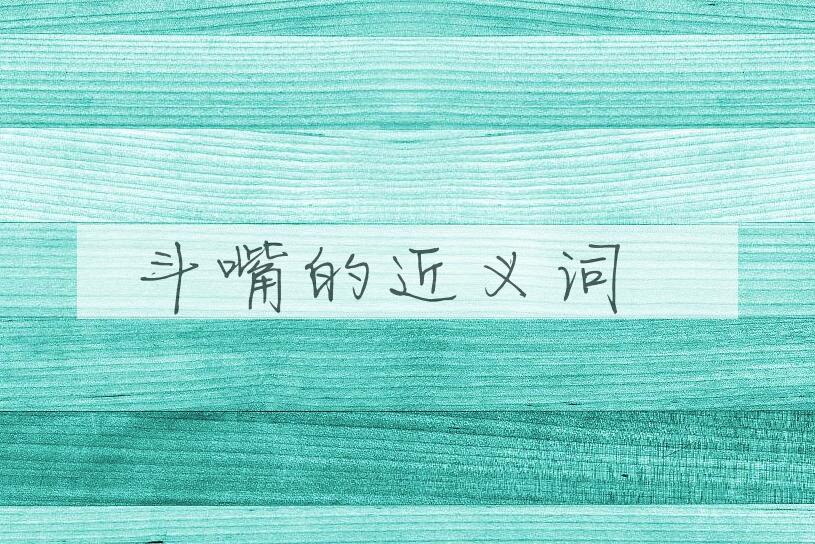 斗嘴的近义词